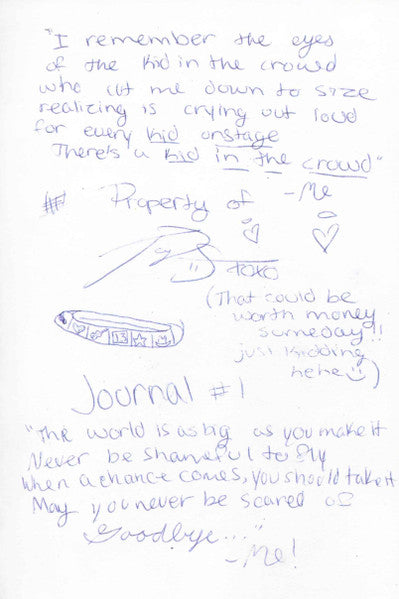 "I remember the eyes
of the kid in the crowd
who cut me down to size
realizing is crying out loud
for every kid onstage
There's a kid in the crowd"
-Me
Property of
xoxo
(That could be
worth money
someday!!
just kidding
hehe)
13
Journal #1
"The world is as big as you make it
Never be shameful to fly
When a chance comes, you should take it
May you never be scared of
Goodbye..."
-Me!